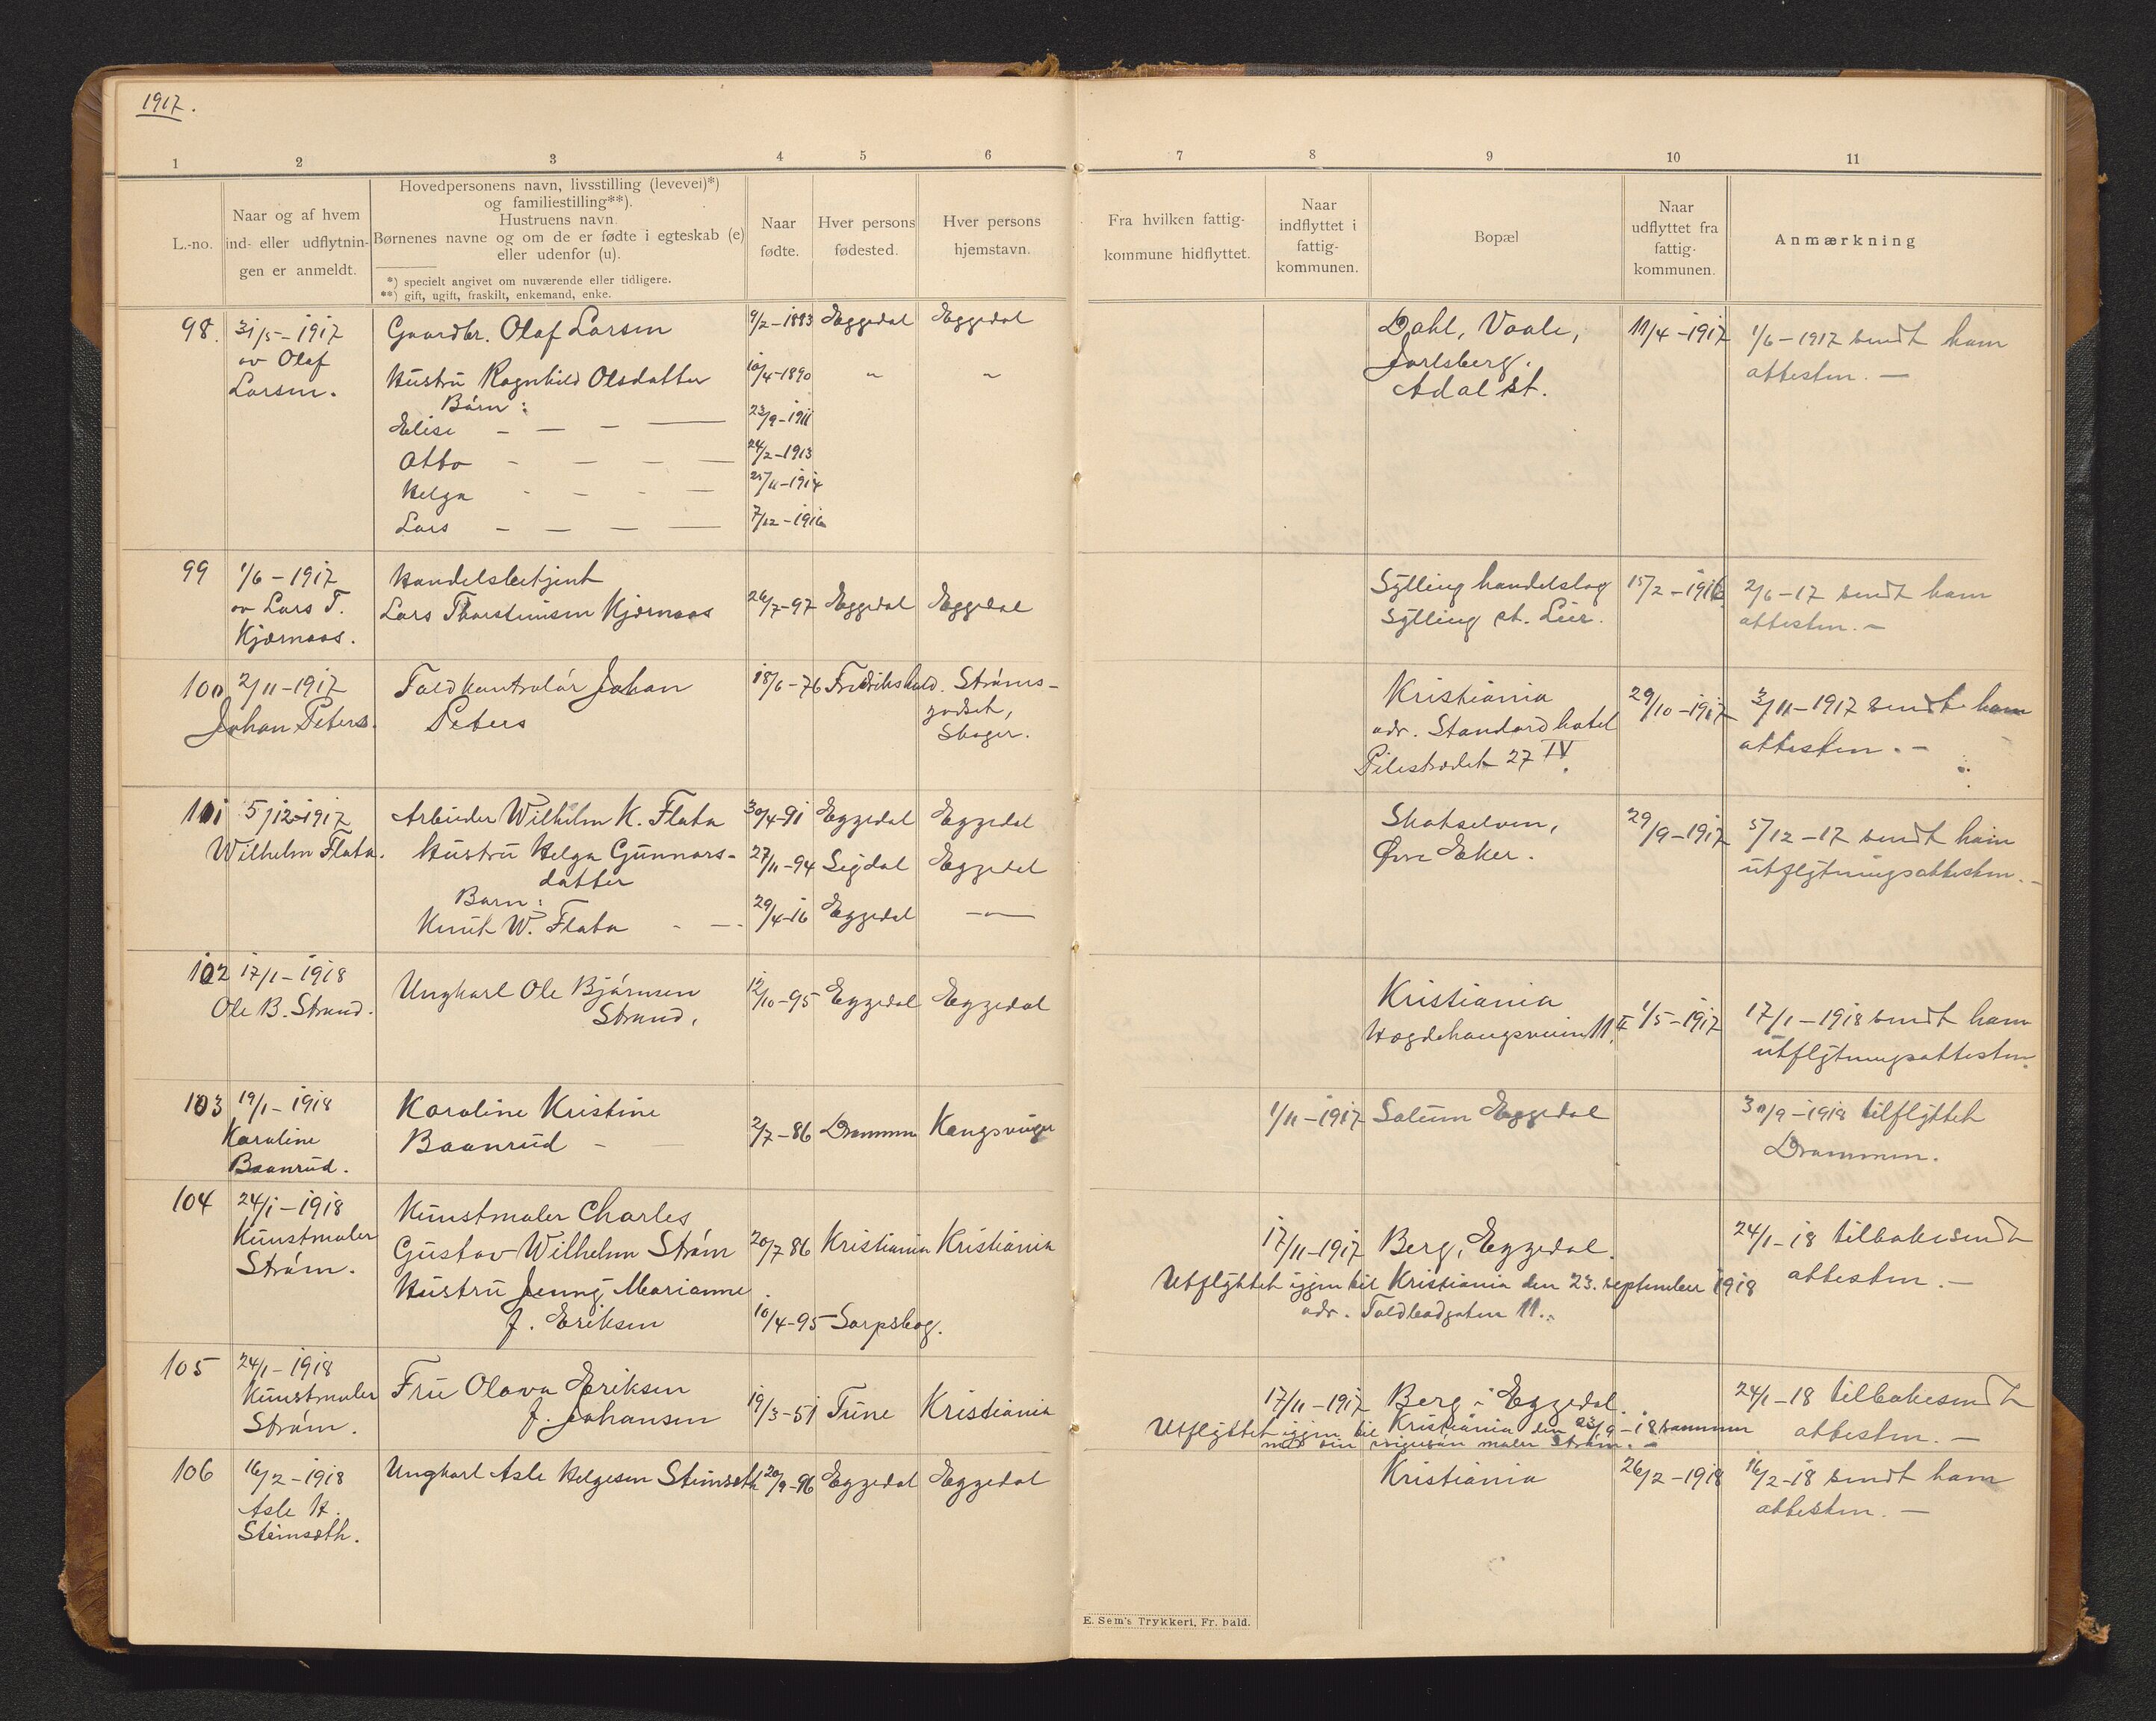 1917.
1 2 3 4 5 6 7 8 9 10 11
L.-no.
Naar og af hvem
ind- eller udflytnin-
gen er anmeldt.
Hovedpersonens navn, livsstilling (levevei)*)
og familiestilling**).
Hustruens navn.
Børnenes navne og om de er fødte i egteskab (e)
eller udenfor (u).
*) specielt angivet om nuværende eller tidligere.
**) gift, ugift, fraskilt, enkemand, enke.
Naar
fødte.
Hver persons
fødested.
Hver persons
hjemstavn.
Fra hvilken fattig-
kommune hidflyttet.
Naar
indflyttet i
fattig-
kommunen.
Bopæl
Naar
udflyttet fra
fattig-
kommunen.
Anmærkning
98. 31/5-1917
av Olaf
Larsen.
Gaardbr. Olaf Larsen 9/2-1883 Eggedal Eggedal
Hustru Ragnhild Olsdatter 10/4-1890 " "
Børn:
Elise - — - — 23/9-1911
Otto - — - — 24/2-1913
Helga - - - — 25/11-1914
Lars — - — — 7/12-1916
Dahl, Vaale,
Jarlsberg.
Adal st.
11/4-1917
1/6-1917 sendt ham
attesten. —
99 1/6-1917
av Lars T.
Kjærnaas.
Handelsbetjent
Lars Thorsteinsen Kjærnaas 26/7-97 Eggedal Eggedal
Sylling handelslag
Sylling st. Lier.
15/2-1916
2/6-17 sendt ham
attesten. —
100 2/11-1917
Johan Peters.
Toldkontrolør Johan
Peters
18/6-76 Fredrikshald. Strøms-
godset,
Skoger.
Kristiania
adr. Standard hotel
Pilestrædet 27 IV.
29/10-1917
3/11-1917 sendt ham
attesten. —
101 5/12-1917
Wilhelm Flata.
Arbeider Wilhelm K. Flata 30/4-91 Eggedal Eggedal
Hustru Helga Gunnars-
datter
27/11-94 Sigdal Eggedal
Barn:
Knut W. Flata - — 29/4-16 Eggedal —"—
Skotselven,
Øvre Eker.
29/9-1917
5/12-17 sendt ham
utflytningsattesten. —
102 17/1-1918
Ole B. Strand.
Ungkarl Ole Bjørnsen
Strand.
12/10-95 Eggedal Eggedal
Kristiania
Hægdehaugsveien 11. II
1/5-1917
17/1-1918 sendt ham
utflytningsattesten.
103 19/1-1918
Karoline
Baanrud.
Karoline Kristine
Baanrud —
2/7-86 Drammen Kongsvinger
1/11-1917 Solum Eggedal
30/9-1918 tilflyttet
Drammen.
104 24/1-1918
Kunstmaler
Strøm.
Kunstmaler Charles
Gustav Wilhelm Strøm 20/7 86 Kristiania Kristiania
Hustru Jenny Marianne
f. Eriksen
10/4-95 Sarpsbog.
17/11-1917 Berg, Eggedal.
Utflyttet igjen til Kristiania den 23. september 1918
adr. Toldbodgaten 11.
24/1-18 tilbakesendt
attesten. —
105 24/1-1918
Kunstmaler
Strøm.
Fru Olava Eriksen
f. Johansen
19/3-51 Tune Kristiania
17/11-1917 Berg i Eggedal.
Utflyttet igjen til Kristiania den 23/9-18 sammen
med sin svigersøn maler Strøm. —
24/1-18 tilbakesendt
attesten. —
106 16/2-1918
Asle H.
Steinseth.
Ungkarl Asle Helgesen Steinseth 20/9-96 Eggedal Eggedal
Kristiania
26/2-1918
16/2-18 sendt ham
attesten. —
E. Sem's Trykkeri, Fr. hald.